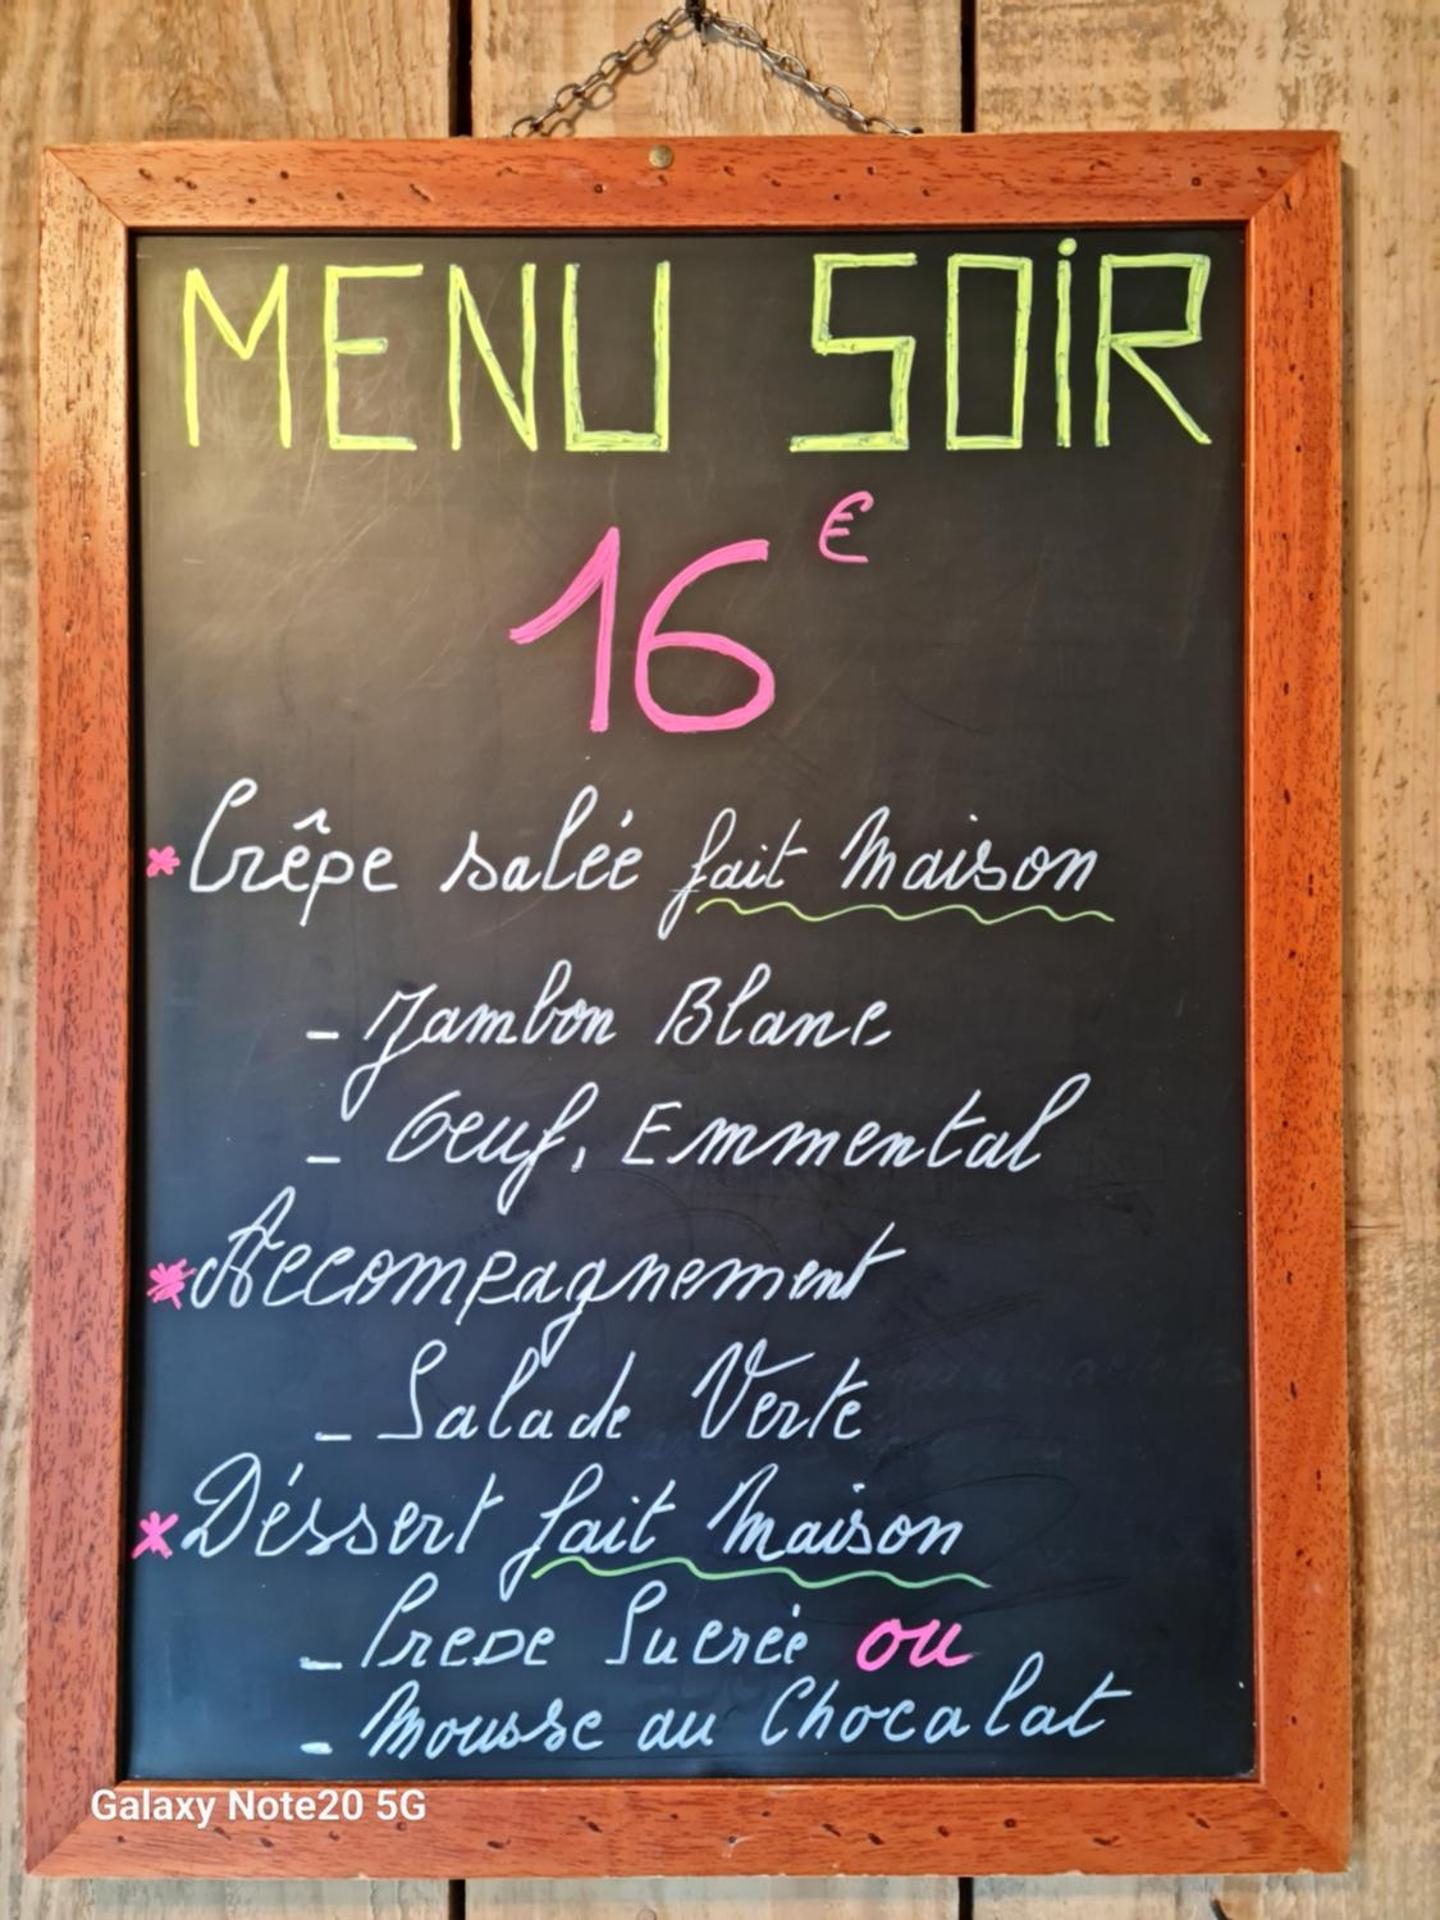 MENU SOiR
16 €
* Crêpe salée fait Maison
- Jambon Blanc
- Oeuf, Emmental
* Accompagnement
- Salade Verte
* Déssert fait Maison
- Crepe Sucrée ou
- Mousse au Chocalat
Galaxy Note20 5G